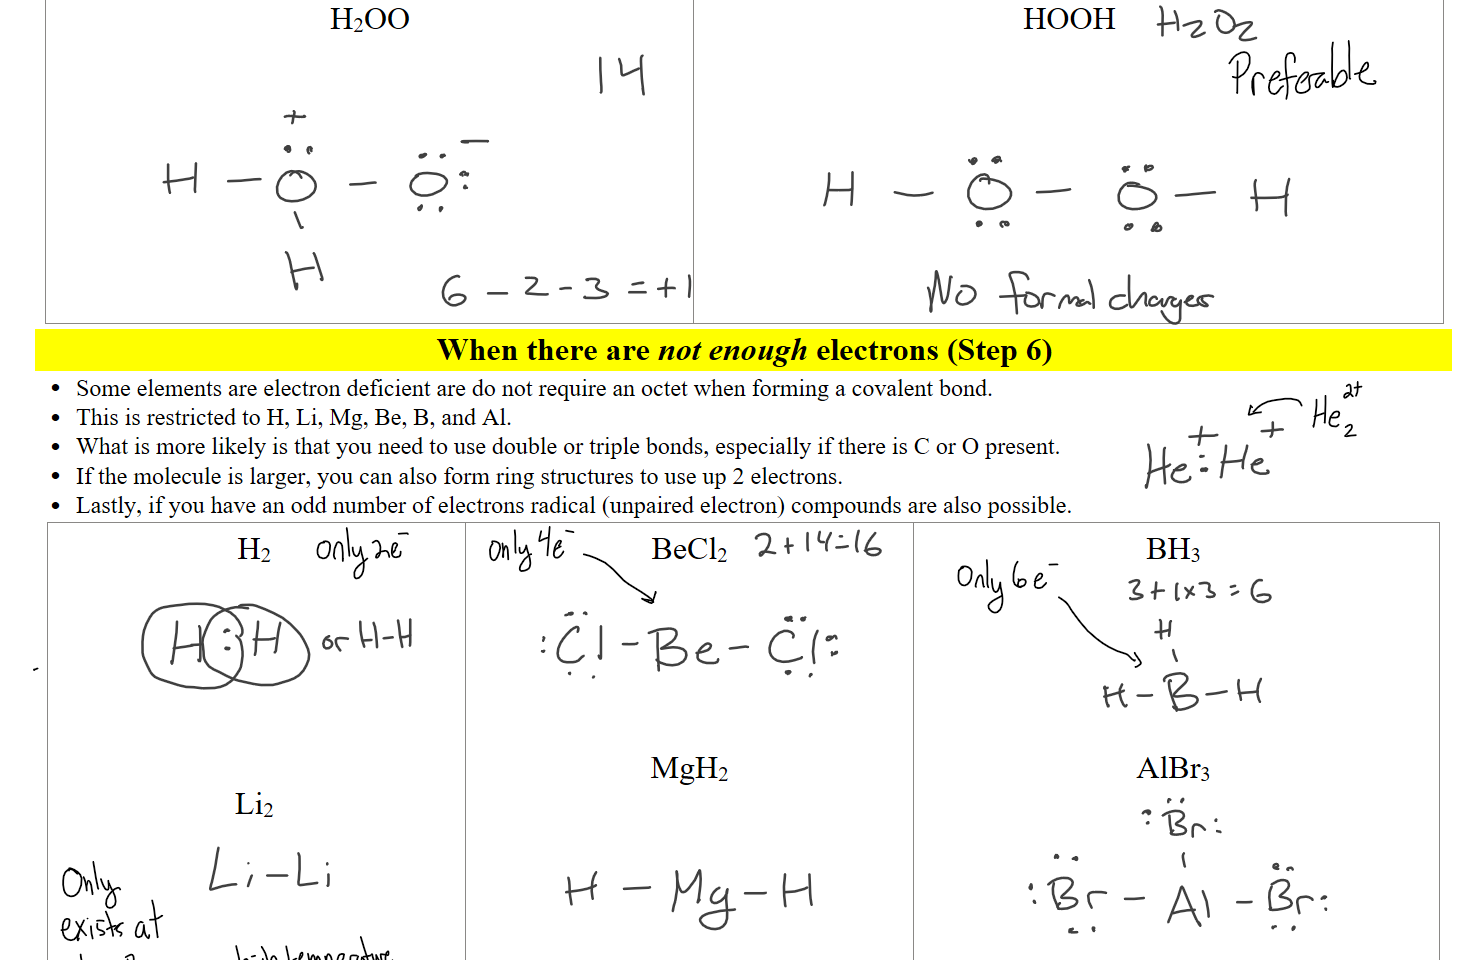 H₂OO
14
+
H - O - O -
H
6 - 2 - 3 = +1
HOOH H₂O₂
Prefoable
H - O - O - H
No formal charges
When there are not enough electrons (Step 6)
• Some elements are electron deficient are do not require an octet when forming a covalent bond.
• This is restricted to H, Li, Mg, Be, B, and Al.
• What is more likely is that you need to use double or triple bonds, especially if there is C or O present.
• If the molecule is larger, you can also form ring structures to use up 2 electrons.
• Lastly, if you have an odd number of electrons radical (unpaired electron) compounds are also possible.
He₂²⁺
+ +
He : He
H₂ only 2e⁻
H : H or H-H
Li₂
Li-Li
Only
exists at
temperature
only 4e⁻ BeCl₂ 2+14=16
:Cl - Be - Cl:
MgH₂
H - Mg - H
BH₃
Only 6e⁻ 3+1×3=6
H
H-B-H
AlBr₃
:Br:
:Br - Al - Br: